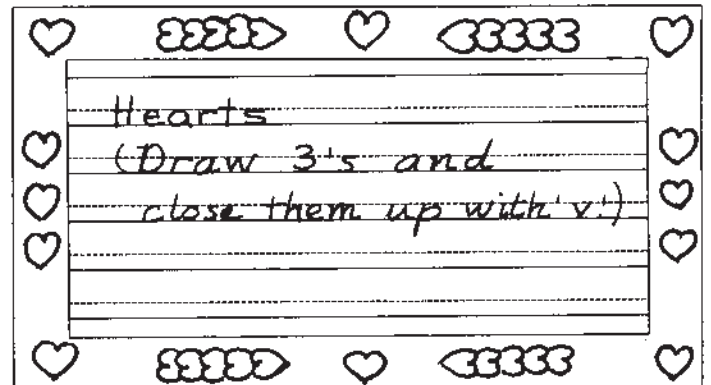 Hearts
(Draw 3's and
close them up with 'v'.)